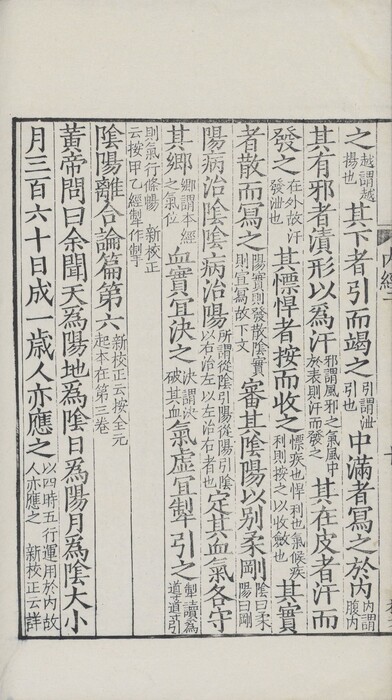 之越謂越揚也其下者引而竭之引謂泄引也中滿者寫之於内内謂腹内
其有邪者漬形以爲汗邪謂風邪之氣風中於表則汗而發之其在皮者汗而
發之在外故汗發泄也其慓悍者按而收之慓疾也悍利也氣候疾利則按之以收斂也其實
者散而寫之陽實則發散陰實則宜寫故下文審其陰陽以別柔剛陰曰柔陽曰剛
陽病治陰陰病治陽所謂從陰引陽從陽引陰以右治左以左治右者也定其血氣各守
其鄉鄉謂本經之氣位血實宜決之決謂決破其血氣虛宜掣引之掣讀爲導導引
則氣行條暢新校正云按甲乙經掣作掣
陰陽離合論篇第六新校正云按全元起本在第三卷
黃帝問曰余聞天爲陽地爲陰日爲陽月爲陰大小
月三百六十日成一歲人亦應之以四時五行運用於内故人亦應之新校正云詳
内經二